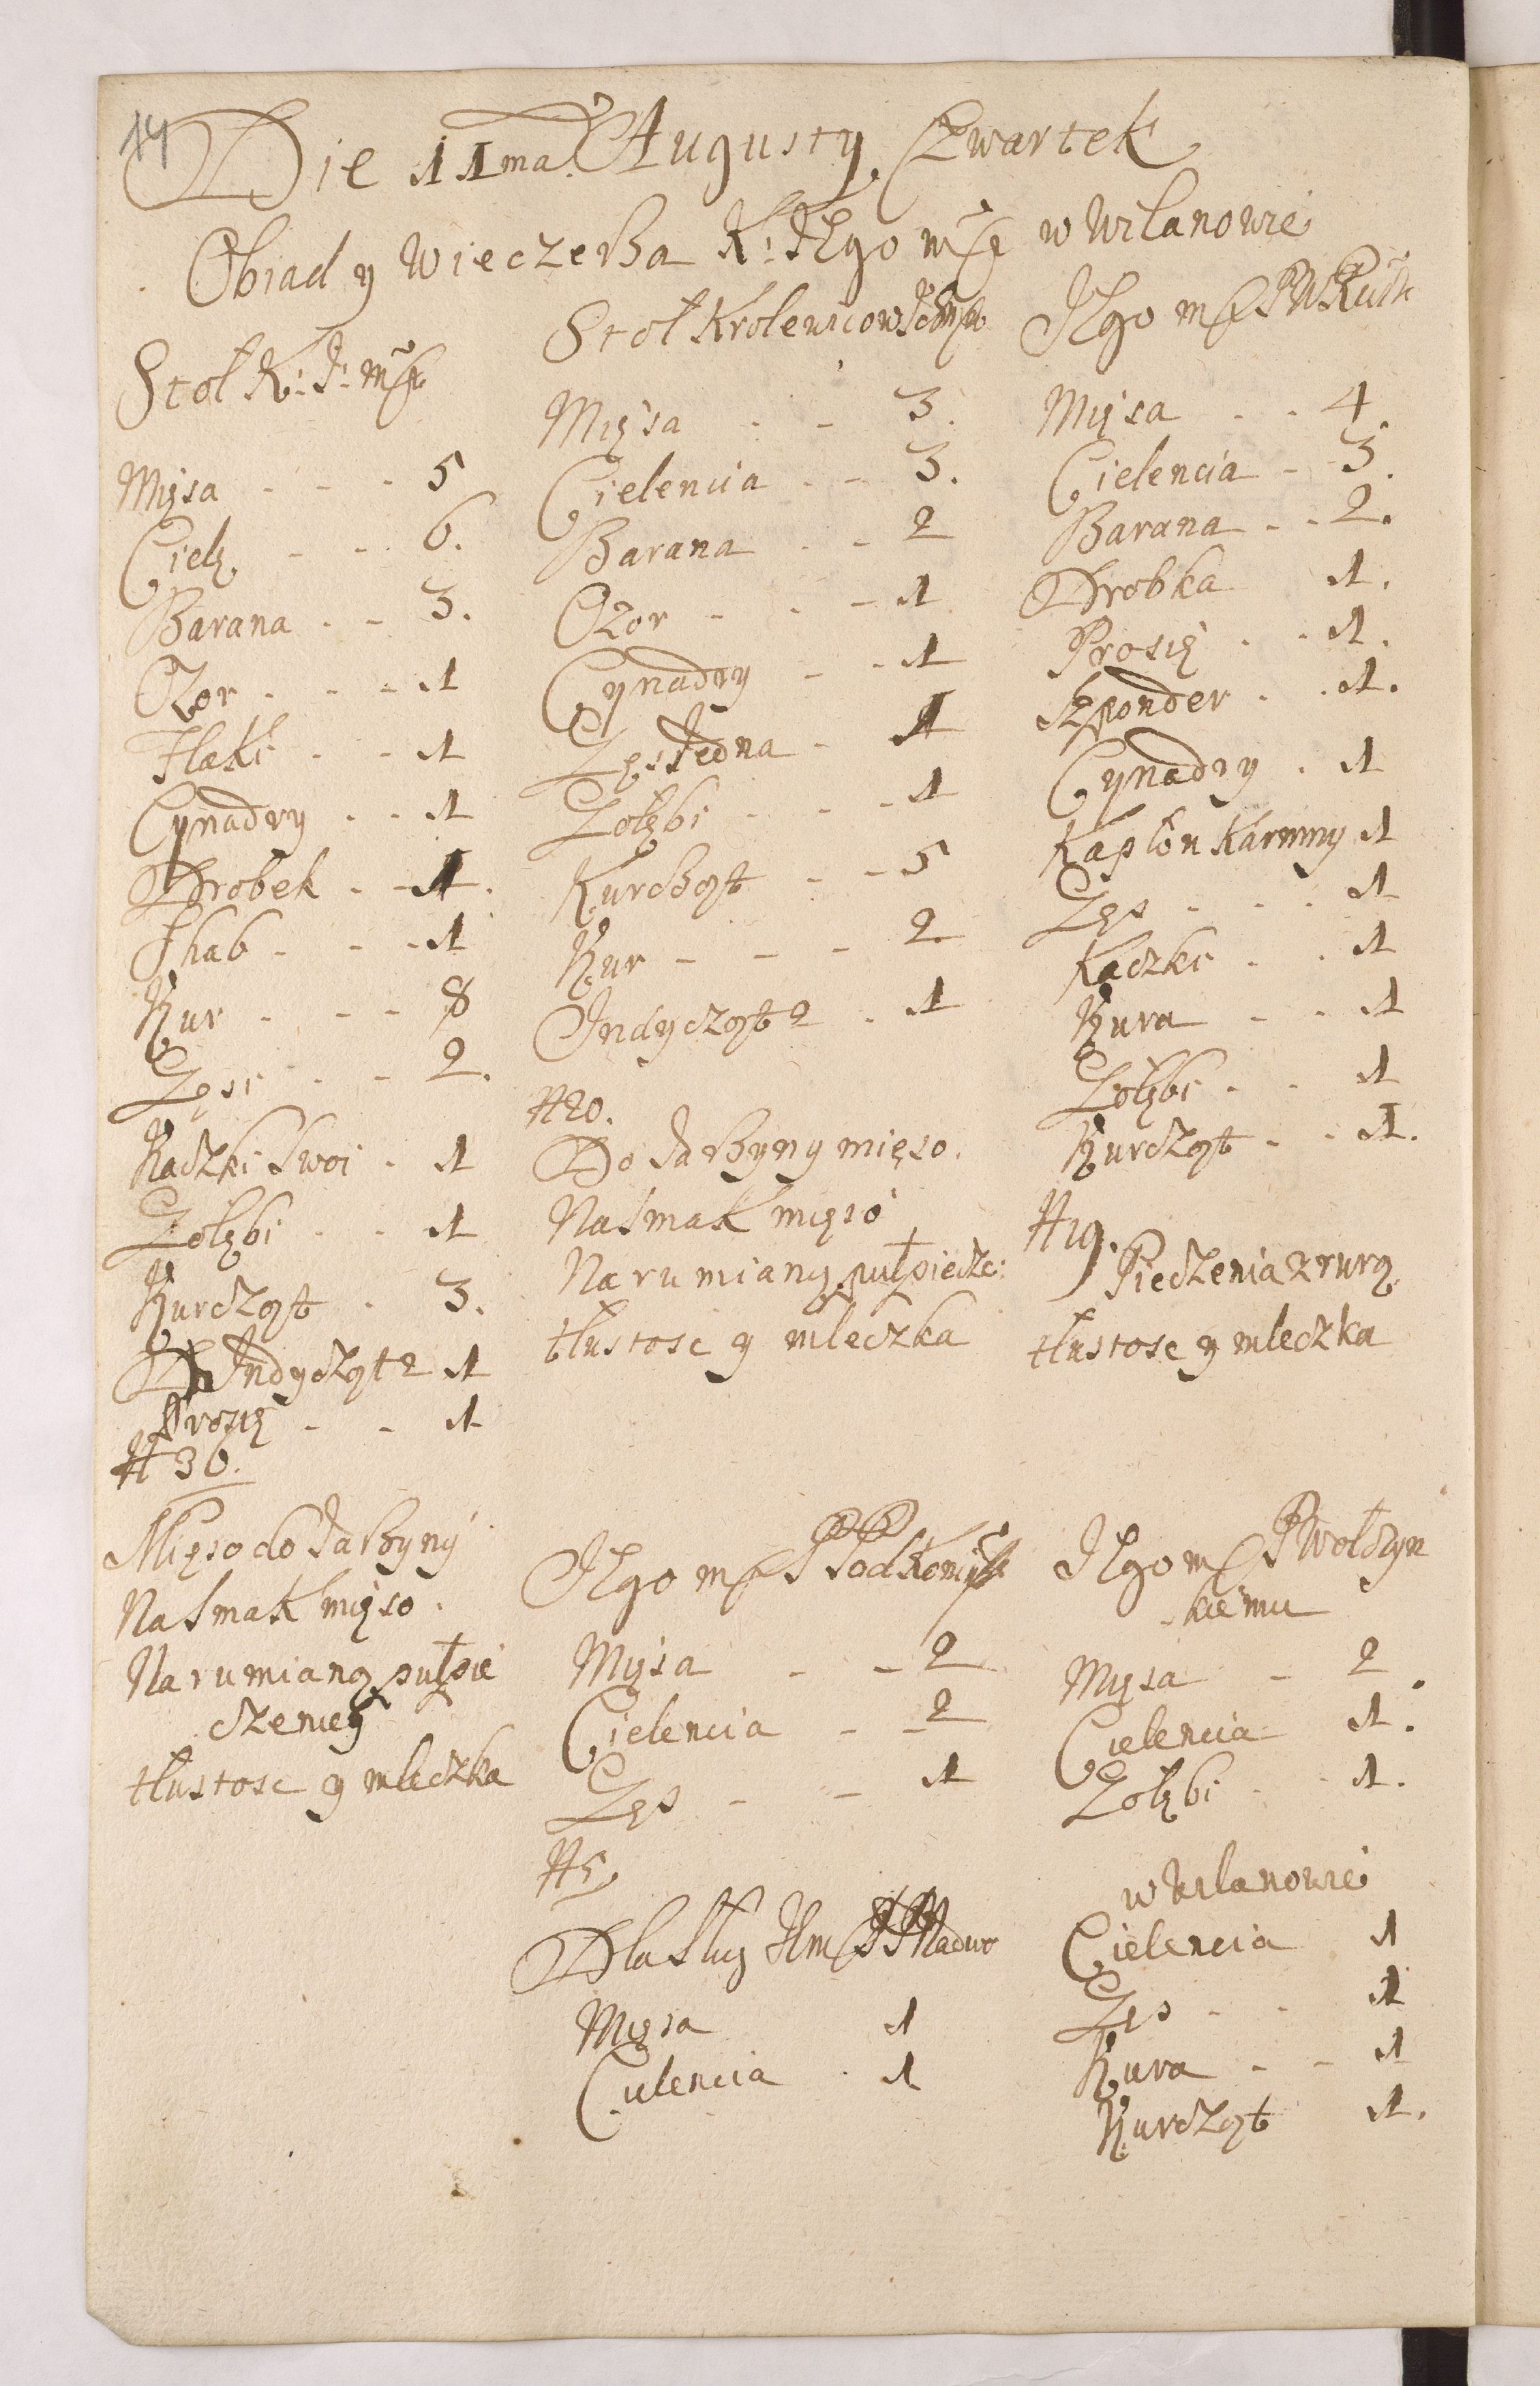 14
Die 11ma Augusty Czwartek
Obiad y Wieczerza K: JEgo mści w Wilanowie
Stoł K: J: mści
Mięsa - - - 5
Cielę - - - 6.
Barana - - 3.
Ozor - - - 1
Flaki - - 1
Cynadry - - 1
Drobek - - 1.
Shab - - - 1
Kur - - - 8
Gęsi - - 2.
Kaczki Swoi - 1
Gołębi - - 1
Kurcząt - 3.
Indycząt 2 1
Prosię - - 1
# 36.
Mięso do Jarzyny
Na Smak mięso.
Na rumianą pułpie
czeniey
tłustosc y mleczka
Stoł Krolewicow
Mięsa - - 3.
Cielencia - - 3.
Barana - - 2
Ozor - - - 1
Cynadry - - 1
Gęs Jedna - 1
Gołębi - - - 1
Kurcząt - - 5
Kur - - - 2
Indycząt 2 - 1
# 20.
Do Jarzyny mięso.
Na Smak mięso
Na rumianą pułpiecze:
tłustosc y mleczka
JEgo mści
Mięsa - - 4.
Cielencia - 3.
Barana - - 2.
Drobka 1.
Prosię - - 1.
Szponder - - 1.
Cynadry - 1
Kapłon Karmny 1
Gęs - - - 1
Kaczki - - 1
Kura - - 1
Gołębi - - 1
Kurcząt - - 1.
# 19.
Pieczenia z rurą
tłustosc y mleczka
JEgo mści P Podkom
Mięsa - - 2
Cielencia - - 2
Gęs - - 1
# 5
Dla Sług
Mięsa 1
Cielencia - 1
JEgo mści P Wołczyn
-skiemu
Mięsa - 2.
Cielencia 1.
Gołębi - 1.
w Wilanowie
Cielencia 1
Gęs - - 1
Kura - - 1
Kurcząt 1.